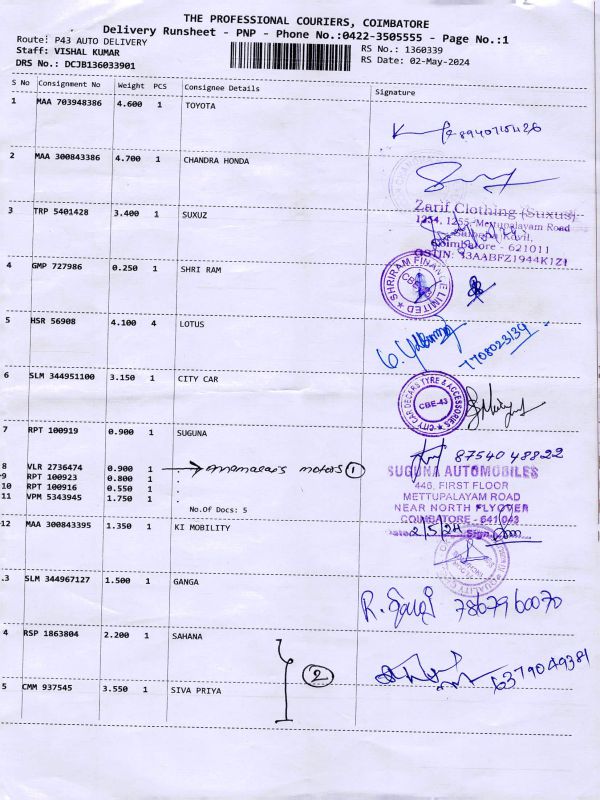 THE PROFESSIONAL COURIERS, COIMBATORE
Delivery Runsheet - PNP - Phone No.:0422-3505555 - Page No.:1
Route: P43 AUTO DELIVERY
Staff: VISHAL KUMAR
DRS No.: DCJB136033901
RS No.: 1360339
RS Date: 02-May-2024
S No Consignment No Weight PCS Consignee Details Signature
1 MAA 703948386 4.600 1 TOYOTA
2 MAA 300843386 4.700 1 CHANDRA HONDA
Zarif Clothing (Suxus)
3 TRP 5401428 3.400 1 SUXUZ
1254, 1255, Mettupalayam Road
Coimbatore - 621011
GSTIN: 33AABFZ1944K1Z1
4 GMP 727986 0.250 1 SHRI RAM
SHRIRAM FINANCE LIMITED
CBE
5 HSR 56908 4.100 4 LOTUS
7708023134
6 SLM 344951100 3.150 1 CITY CAR
CITY CAR DECARS TYRE & ACCESSORIES
CBE-43
7 RPT 100919 0.900 1 SUGUNA
8754048822
8 VLR 2736474 0.900 1 Annamalais motors 1
9 RPT 100923 0.800 1 .
10 RPT 100916 0.550 1 .
11 VPM 5343945 1.750 1 .
No.Of Docs: 5
SUGUNA AUTOMOBILES
446, FIRST FLOOR
METTUPALAYAM ROAD
NEAR NORTH FLYOVER
COIMBATORE - 641043
2/5/24 Sign
12 MAA 300843395 1.350 1 KI MOBILITY
.3 SLM 344967127 1.500 1 GANGA
7867960070
4 RSP 1863804 2.200 1 SAHANA
2
6379049381
5 CMM 937545 3.550 1 SIVA PRIYA